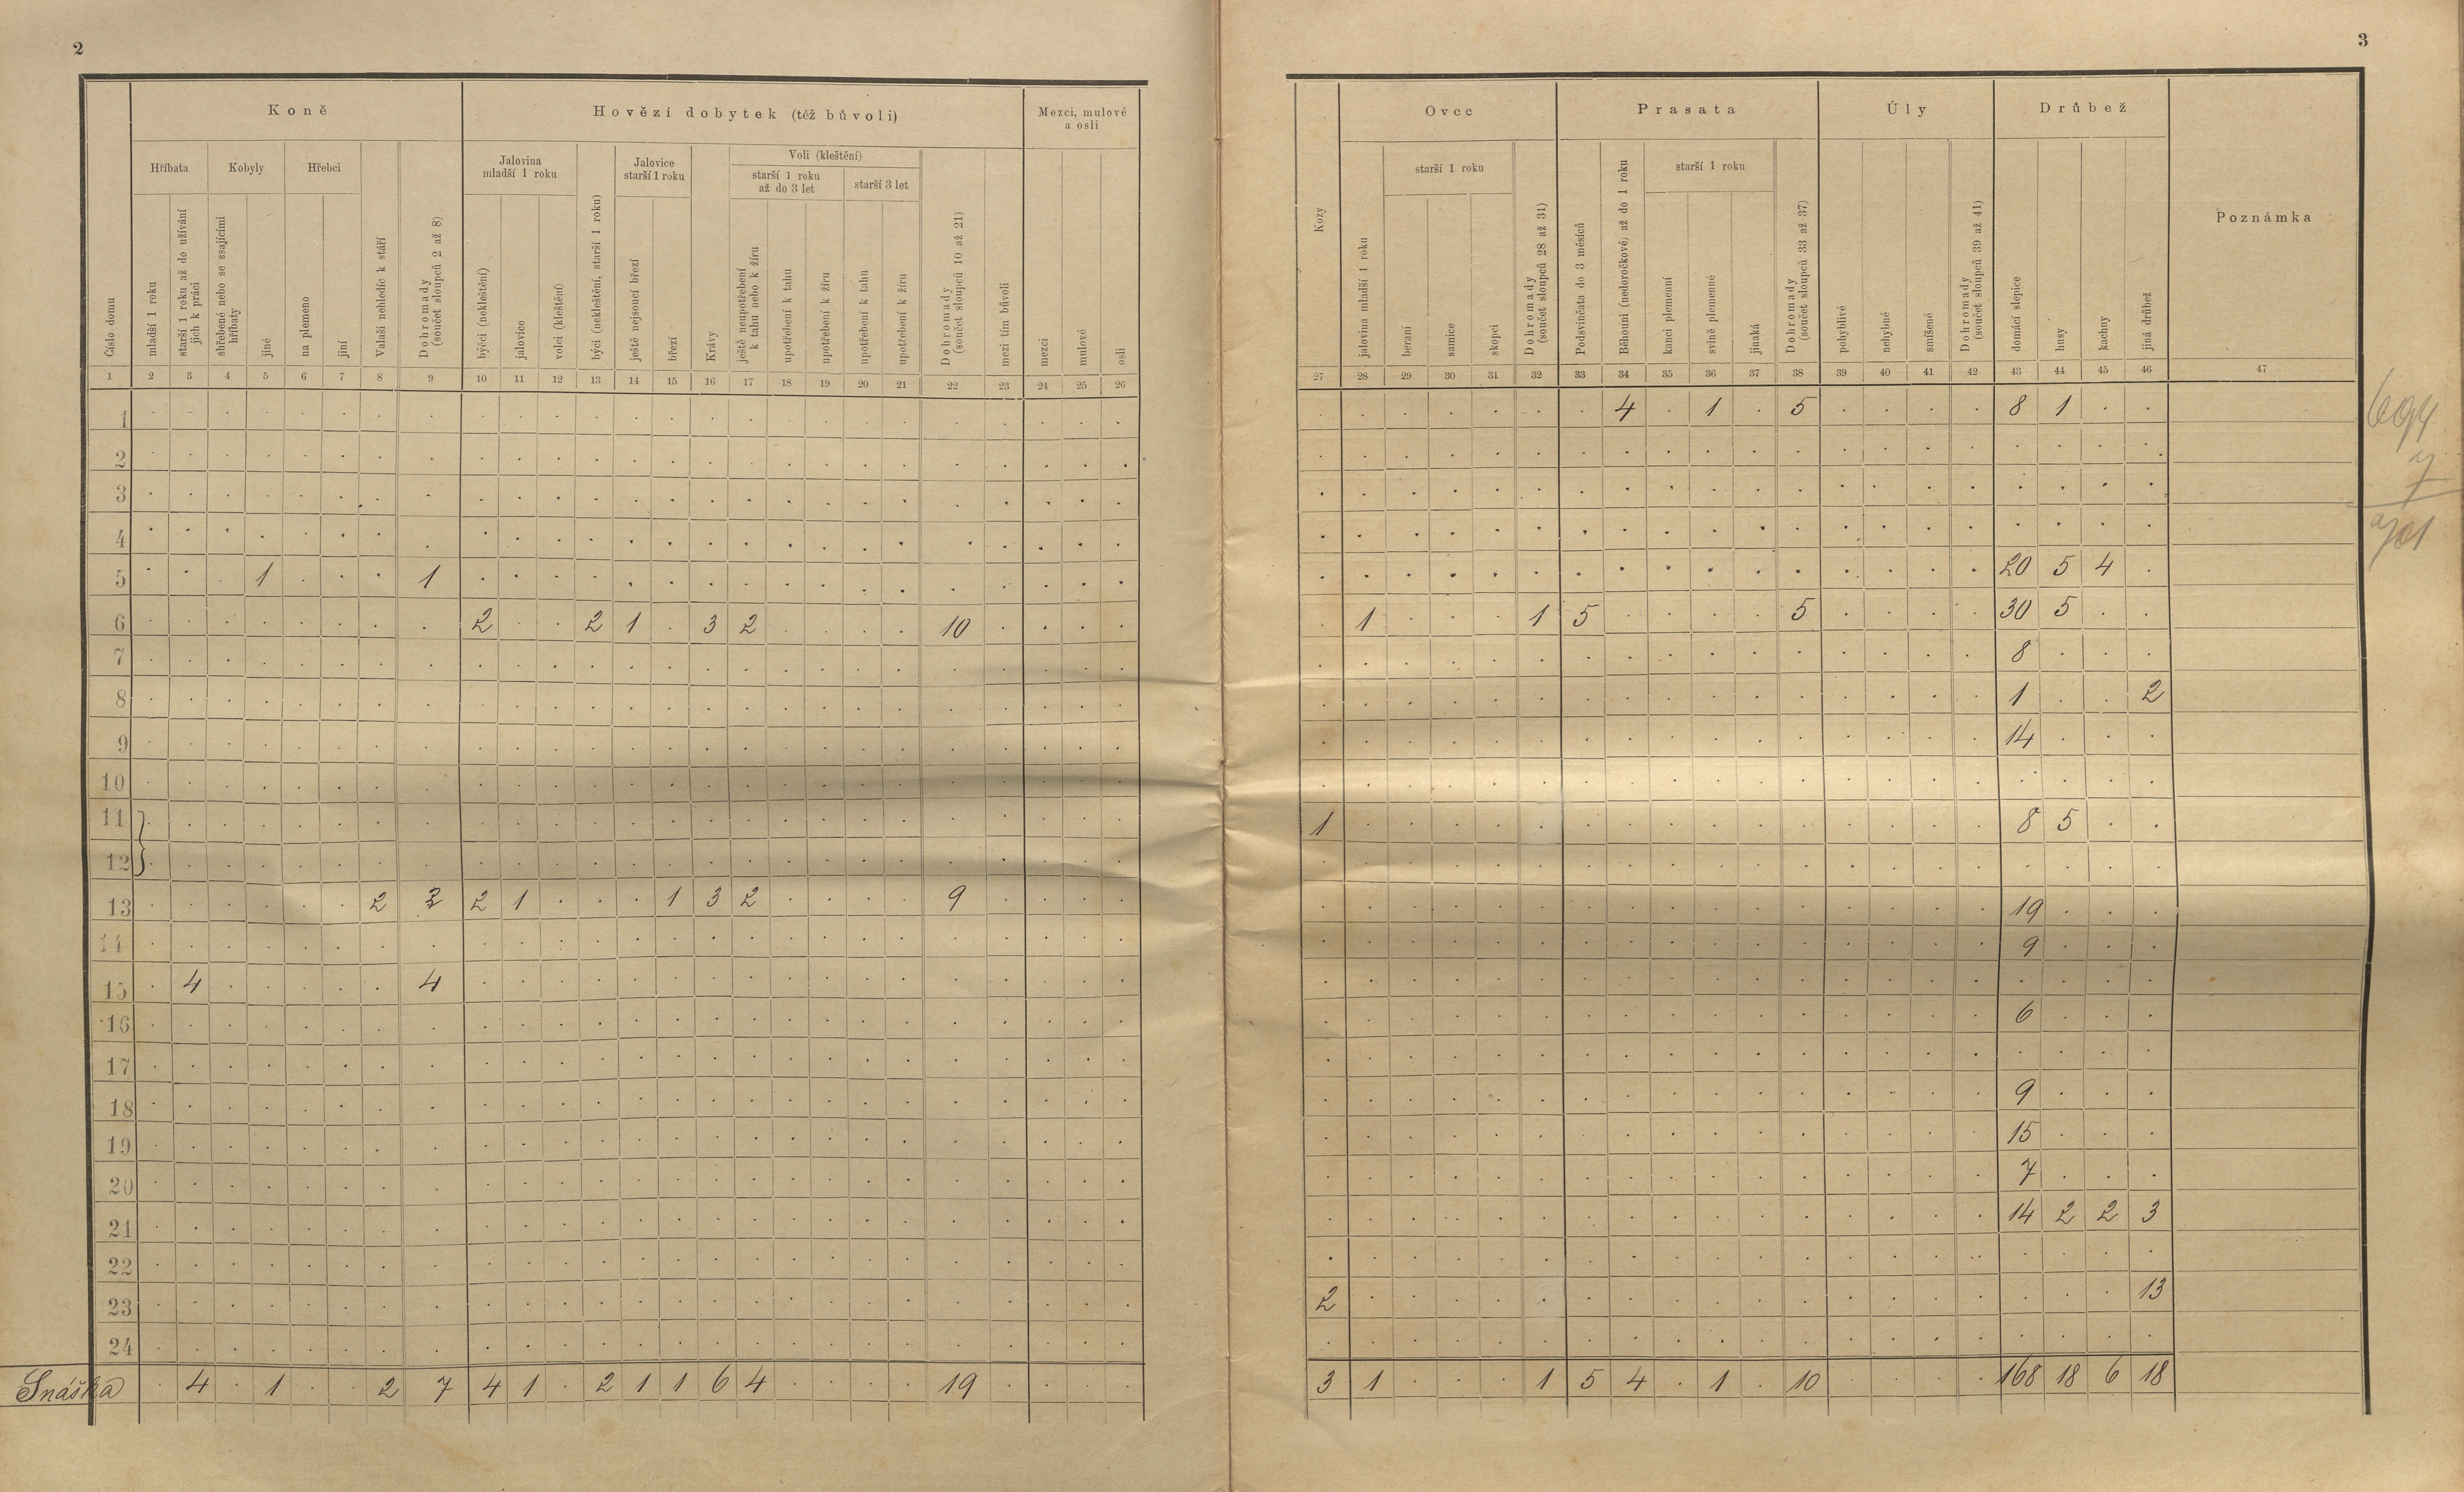 2
3
Koně
Hovězí dobytek (též bůvoli)
Mezci, mulové
a osli
Hříbata
Kobyly
Hřebci
Jalovina
mladší 1 roku
Jalovice
starší 1 roku
Voli (kleštění)
starší 1 roku
až do 3 let
starší 3 let
Číslo domu
mladší 1 roku
starší 1 roku až do užívání
jich k práci
shřebené nebo se ssajícími
hříbaty
jiné
na plemeno
jiní
Valaši nehledíc k stáří
Dohromady
(součet sloupců 2 až 8)
býčci (nekleštění)
jalovice
volci (kleštění)
býci (nekleštění, starší 1 roku)
ještě nejsoucí březí
březí
Krávy
ještě neupotřebení
k tahu nebo k žíru
upotřebení k tahu
upotřebení k žíru
upotřebení k tahu
upotřebení k žíru
Dohromady
(součet sloupců 10 až 21)
mezi tím bůvoli
mezci
mulové
osli
1 2 3 4 5 6 7 8 9 10 11 12 13 14 15 16 17 18 19 20 21 22 23 24 25 26
Ovce
Prasata
Úly
Drůbež
Poznámka
starší 1 roku
starší 1 roku
Kozy
jalovina mladší 1 roku
berani
samice
skopci
Dohromady
(součet sloupců 28 až 31)
Podsvinčata do 3 měsíců
Běhouni (nedoročkové) až do 1 roku
kanci plemenní
svině plemenné
jinaká
Dohromady
(součet sloupců 33 až 37)
pohyblivé
nehybné
smíšené
Dohromady
(součet sloupců 39 až 41)
domácí slepice
husy
kachny
jiná drůbež
27 28 29 30 31 32 33 34 35 36 37 38 39 40 41 42 43 44 45 46 47
1 4 1 5 8 1
2
3
4
5 1 1 20 5 4
6 2 2 1 3 2 10 1 1 5 5 30 5
7 8
8 1 2
9 14
10
11 1 8 5
12
13 2 2 2 1 1 3 2 9 19
14 9
15 4 4
16 6
17
18 9
19 15
20 7
21 14 2 2 3
22
23 2 13
24
Snáška 4 1 2 7 4 1 2 1 1 6 4 19 3 1 1 5 4 1 10 168 18 6 18
694
7
701